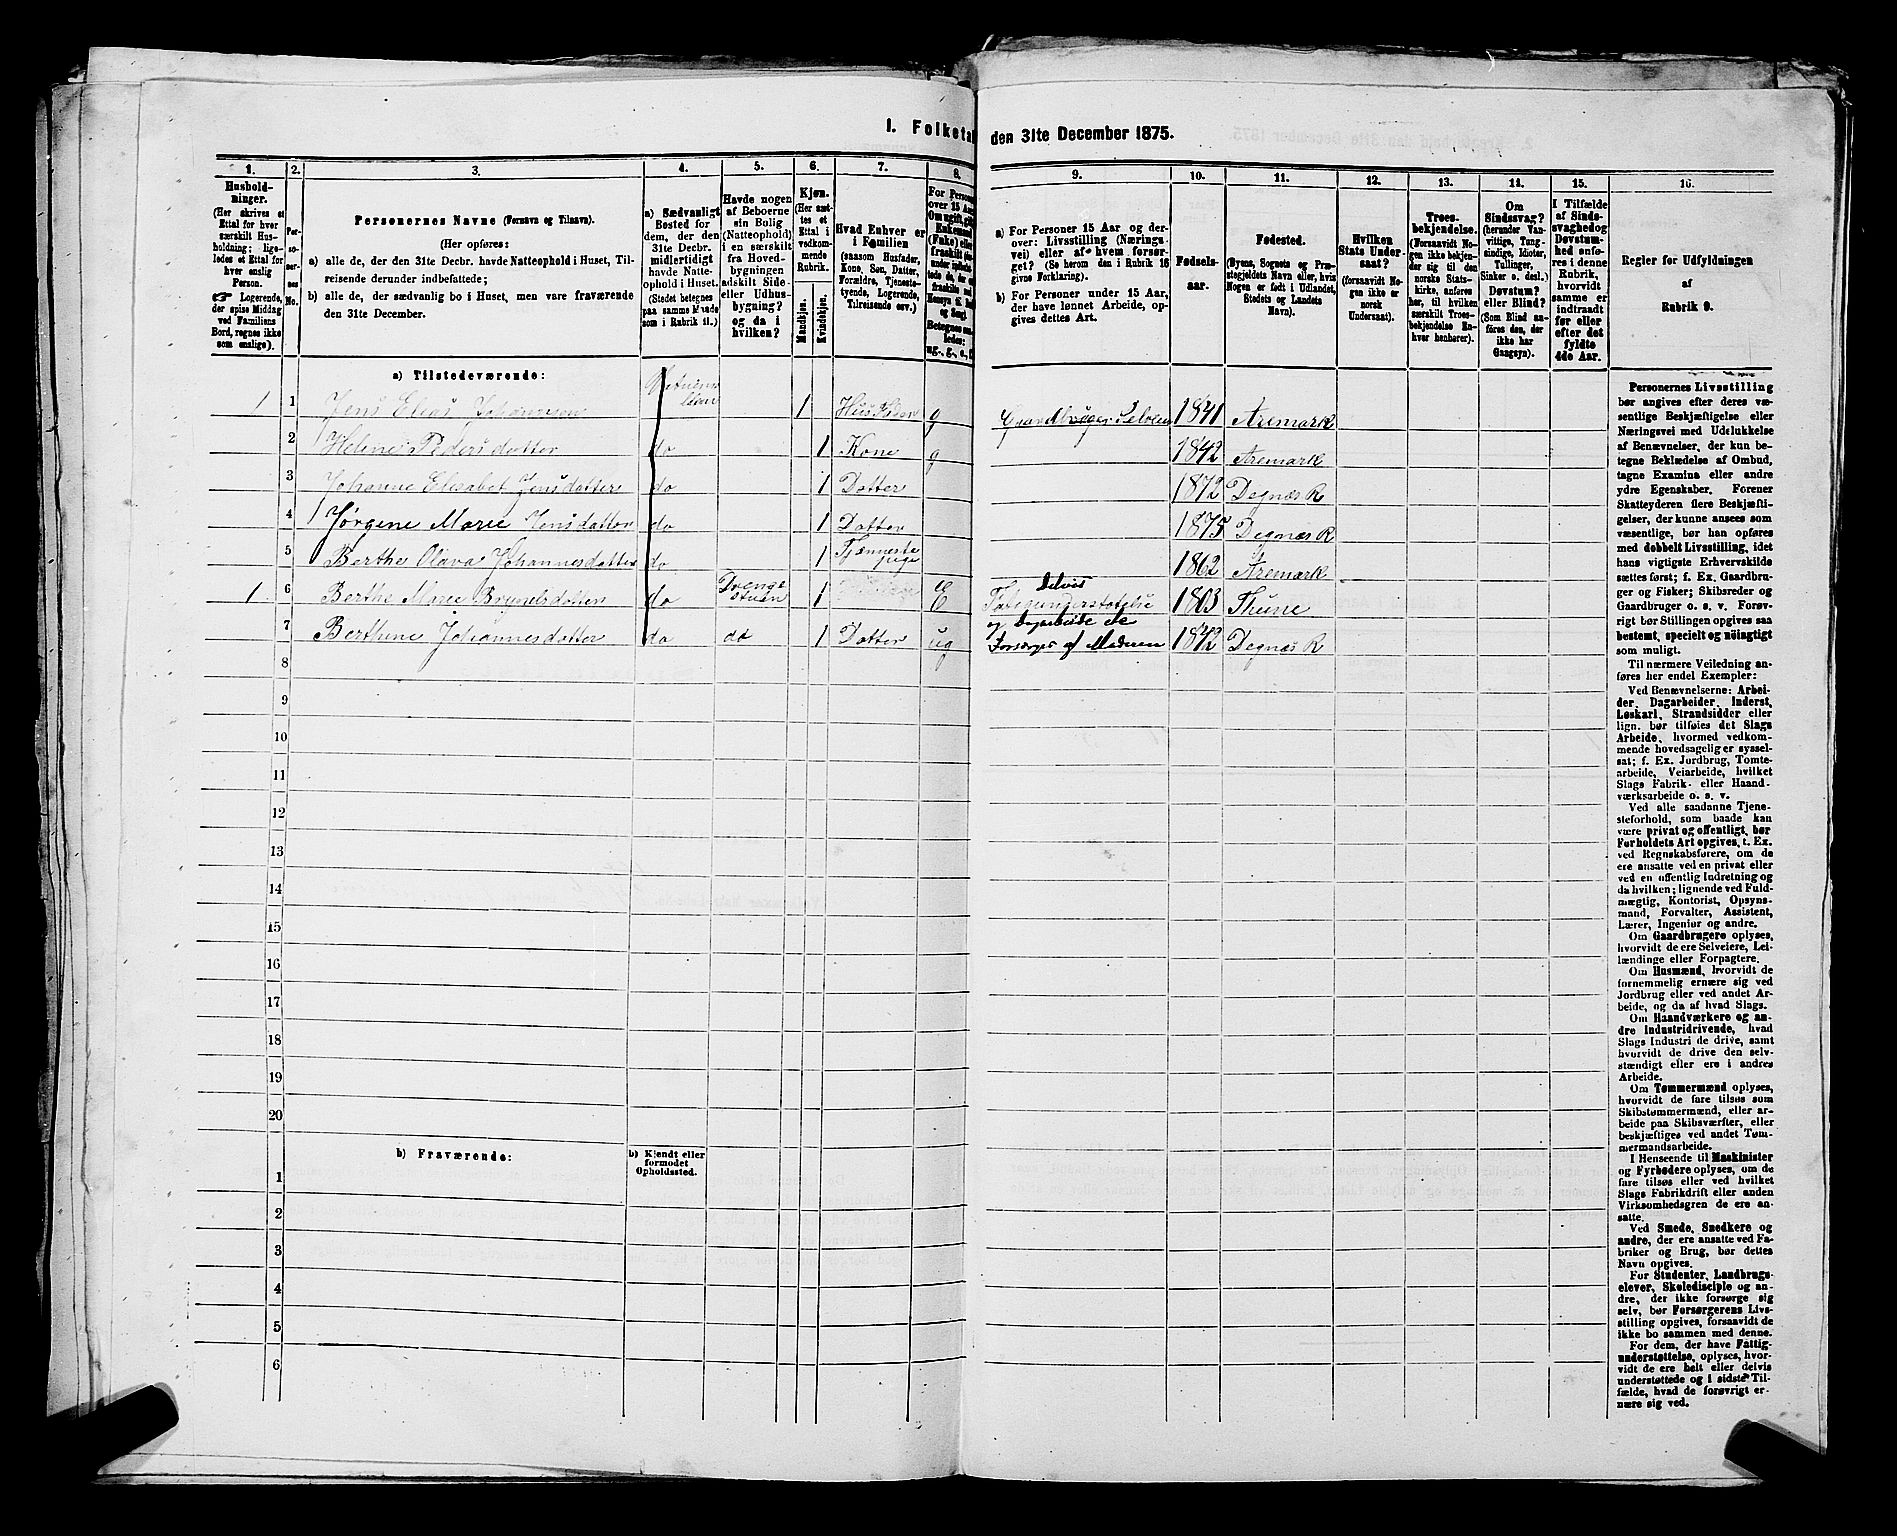 1. Folketal
den 31te December 1875.
1. 2. 3. 4. 5. 6. 7. 8. 9. 10. 11. 12. 13. 14. 15. 16.
Hushold-
ninger.
(Her skrives et
Ettal for hver
særskilt Hus-
holdning; lige-
ledes et Ettal for
hver enslig
Person.
☞ Logerende,
der spise Middag
ved Familiens
Bord, regnes ikke
som enslige).
Per-
so-
ner-
nes
No.
Personernes Navne (Fornavn og Tilnavn).
(Her opføres:
a) alle de, der den 31te Decbr. havde Natteophold i Huset, Til-
reisende derunder indbefattede;
b) alle de, der sædvanlig bo i Huset, men vare fraværende
den 31te December.
a) Sædvanligt
Bosted for
dem, der den
31te Decbr.
midlertidigt
havde Natte-
ophold i Huset.
(Stedet betegnes
paa samme Maade
som i Rubrik 11.)
Havde nogen
af Beboerne
sin Bolig
(Natteophold)
i en særskilt
fra Hoved-
bygningen
adskilt Side-
eller Udhus-
bygning?
og da i
hvilken?
Kjøn.
(Her sæt-
tes et
Ettal i
vedkom-
mende
Rubrik.
Mandkjøn.
Kvindekjøn.
Hvad Enhver er
i Familien
(saasom Husfader,
Kone, Søn, Datter,
Forældre, Tjeneste-
tyende, Logerende,
Tilreisende osv.)
For Personer
over 15 Aar
a) For Personer 15 Aar og der-
over: Livsstilling (Nærings-
vei) eller af hvem forsør-
get? (Se herom den i Rubrik 16
givne Forklaring).
b) For Personer under 15 Aar,
der have lønnet Arbeide, op-
gives dettes Art.
Fødsels-
aar.
Fødested.
(Byens, Sognets og Præ-
stegjeldets Navn eller, hvis
Nogen er født i Udlandet,
Stedets og Landets
Navn).
Hvilken
Stats Under-
saat?
(forsaavidt No-
gen ikke er
norsk
Undersaat).
Troes-
bekjendelse.
(Forsaavidt No-
gen ikke bekjen-
der sig til den
norske Stats-
kirke, anføres
her, til hvilken
særskilt Troes-
bekjendelse En-
hver henhører).
Om
Sindssvag?
(herunder Van-
vittige, Tung-
sindige, Idioter,
Tullinger,
Sinker o. desl.)
Døvstum?
eller Blind?
(Som Blind an-
føres den, der
ikke har
Gangsyn).
I Tilfælde
af Sinds-
svaghed og
Døvstum-
hed anfø-
res i denne
Rubrik,
hvorvidt
samme er
indtraadt
før eller
efter det
fyldte
4de Aar.
Regler for Udfyldningen
af
Rubrik 9.
a) Tilstedeværende:
1 1 Jens Elias Johannsen 1 Husfader g Gaardbruger Selveier 1841 Aremark
2 Heline Pedersdatter do 1 Kone g 1842 Aremark
3 Johanne Elisabet Jensdatter do 1 Datter 1872 Degnæs R
4 Jørgene Marie Jensdatter do 1 Datter 1875 Degnæs R
5 Berthe Olava Johannesdatter do 1 Tjenneste pige 1862 Aremark
1 6 Berthe Marie Brynelsdatter do Drenge stuen 1 e Delvis Fatigunderstøttelse 1803 Thune
og Dagarbeide de
7 Berthene Johannesdatter do do 1 Datter ug Forsørges af Moderen 1842 Degnæs R
8
9
10
11
12
13
14
15
16
17
18
19
20
b) Fraværende:
b) Kjendt eller
formodet
Opholdssted.
1
2
3
4
5
6
Personernes Livsstilling
bør angives efter deres væ-
sentlige Beskjæftigelse eller
Næringsvei med Udelukkelse
af Benævnelser, der kun be-
tegne Beklædelse af Ombud,
tagne Examina eller andre
ydre Egenskaber. Forener
Skatteyderen flere Beskjæfti-
gelser, der kunne ansees som
væsentlige, bør han opføres
med dobbelt Livsstilling, idet
hans vigtigste Erhvervskilde
sættes først; f. Ex. Gaardbru-
ger og Fisker; Skibsreder og
Gaardbruger o. s. v. Forøv-
rigt bør Stillingen opgives saa
bestemt, specielt og nøiagtigt
som muligt.
Til nærmere Veiledning an-
føres her endel Exempler:
Ved Benævnelserne: Arbei-
der, Dagarbeider, Inderst,
Løskarl, Strandsidder eller
lign. bør tilføies det Slags
Arbeide, hvormed vedkom-
mende hovedsagelig er syssel-
sat; f. Ex. Jordbrug, Tomte-
arbeide, Veiarbeide, hvilket
Slags Fabrik- eller Haand-
værksarbeide o. s. v.
Ved alle saadanne Tjene-
steforhold, som baade kan
være privat og offentligt, bør
Forholdets Art opgives, f. Ex.
ved Regnskabsførere, om de
ere ansatte ved en privat eller
ved en offentlig Indretning og
da hvilken; lignende ved Fuld-
mægtig, Kontorist, Opsyns-
mand, Forvalter, Assistent,
Lærer, Ingeniør og andre.
Om Gaardbrugere oplyses,
hvorvidt de ere Selveiere, Lei-
lændinge eller Forpagtere.
Om Husmænd, hvorvidt de
fornemmelig ernære sig ved
Jordbrug eller ved andet Ar-
beide, og da af hvad Slags.
Om Haandværkere og an-
dre Industridrivende, hvad
Slags Industri de drive, samt
hvorvidt de drive den selv-
stændigt eller ere i andres
Arbeide.
Om Tømmermænd oplyses,
hvorvidt de fare tilsøs som
Skibstømmermænd, eller ar-
beide paa Skibsværfter, eller
beskjæftiges ved andet Tøm-
mermandsarbeide.
I Henseende til Maskinister
og Fyrbødere oplyses, om de
fare tilsøs eller ved hvilket
Slags Fabrikdrift eller anden
Virksomhedsgren de ere an-
satte.
Ved Smede, Snedkere og
andre, der ere ansatte ved Fa-
briker og Brug, bør dettes
Navn opgives.
For Studenter, Landbrugs-
elever, Skoledisciple og an-
dre, der ikke forsørge sig
selv, bør Forsørgerens Livs-
stilling opgives, forsaavidt de
ikke bo sammen med denne.
For dem, der have Fattig-
understøttelse, oplyses, hvor-
vidt de ere helt eller delvis
understøttede og i sidste Til-
fælde, hvad de forøvrigt er-
nære sig ved.